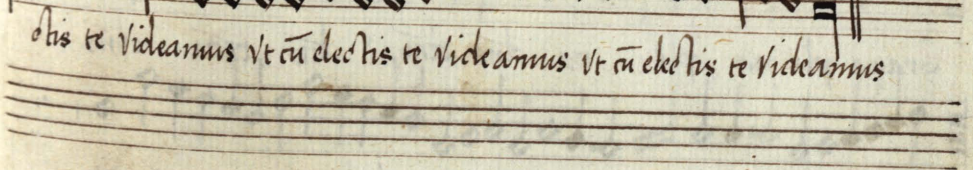 ctis te videamus vt cū electis te videamus vt cū electis te videamus